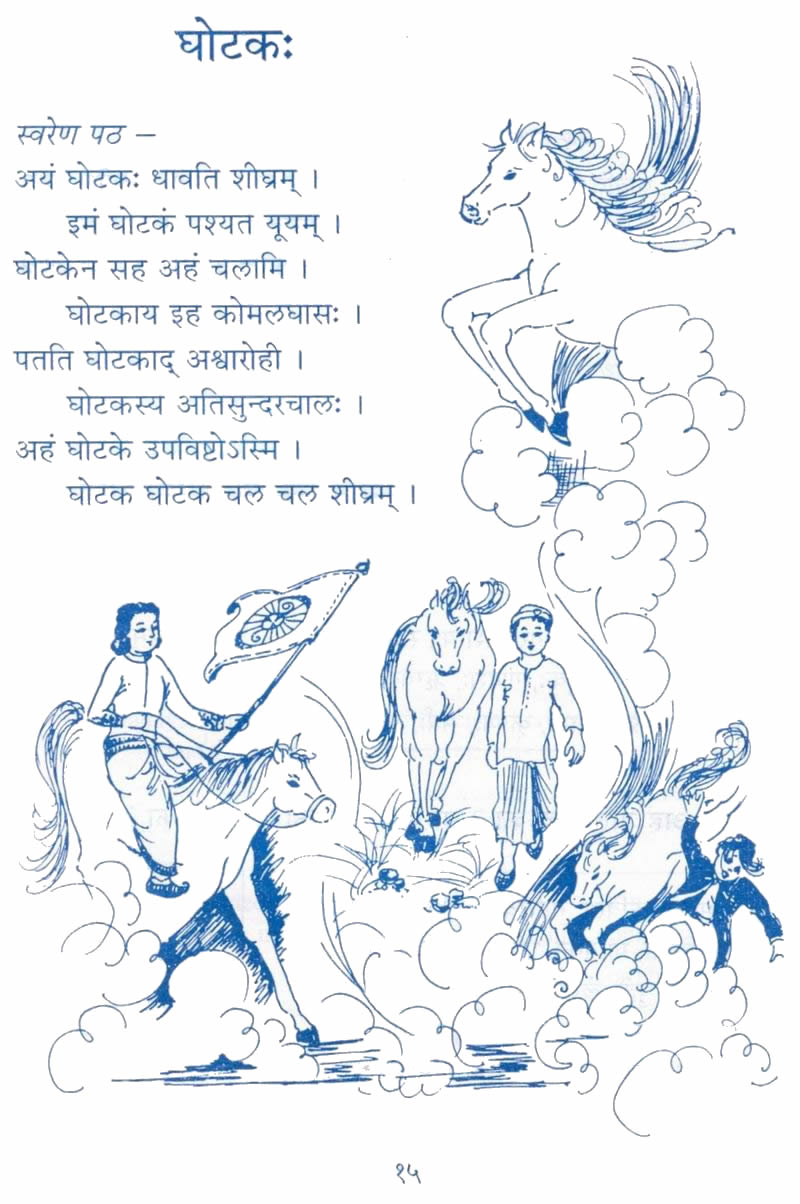 घोटकः
स्वरेण पठ –
अयं घोटकः धावति शीघ्रम् ।
इमं घोटकं पश्यत यूयम् ।
घोटकेन सह अहं चलामि ।
घोटकाय इह कोमलघासः ।
पतति घोटकाद् अश्वारोही ।
घोटकस्य अतिसुन्दरचालः ।
अहं घोटके उपविष्टोऽस्मि ।
घोटक घोटक चल चल शीघ्रम् ।
१५